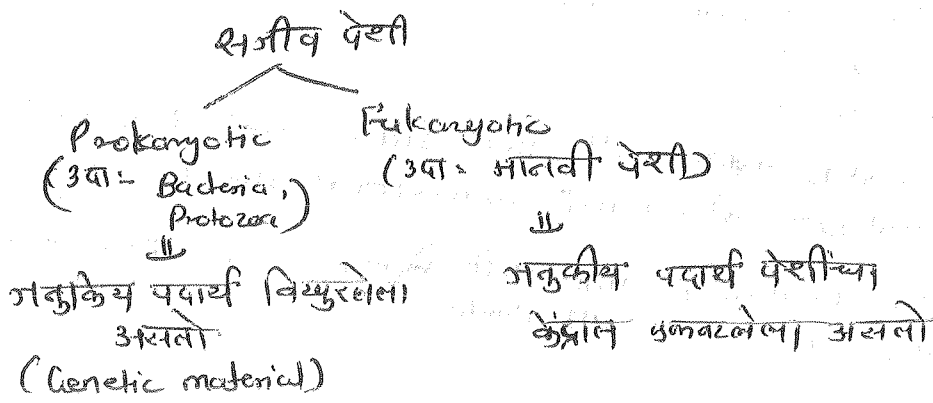 सजीव पेशी
Prokaryotic
(उदा:- Bacteria,
Protozoa)
जनुकिय पदार्थ विखुरलेला
असतो
(Genetic material)
Eukaryotic
(उदा: मानवी पेशी)
जनुकीय पदार्थ पेशींच्या
केंद्रात एकवटलेला असतो